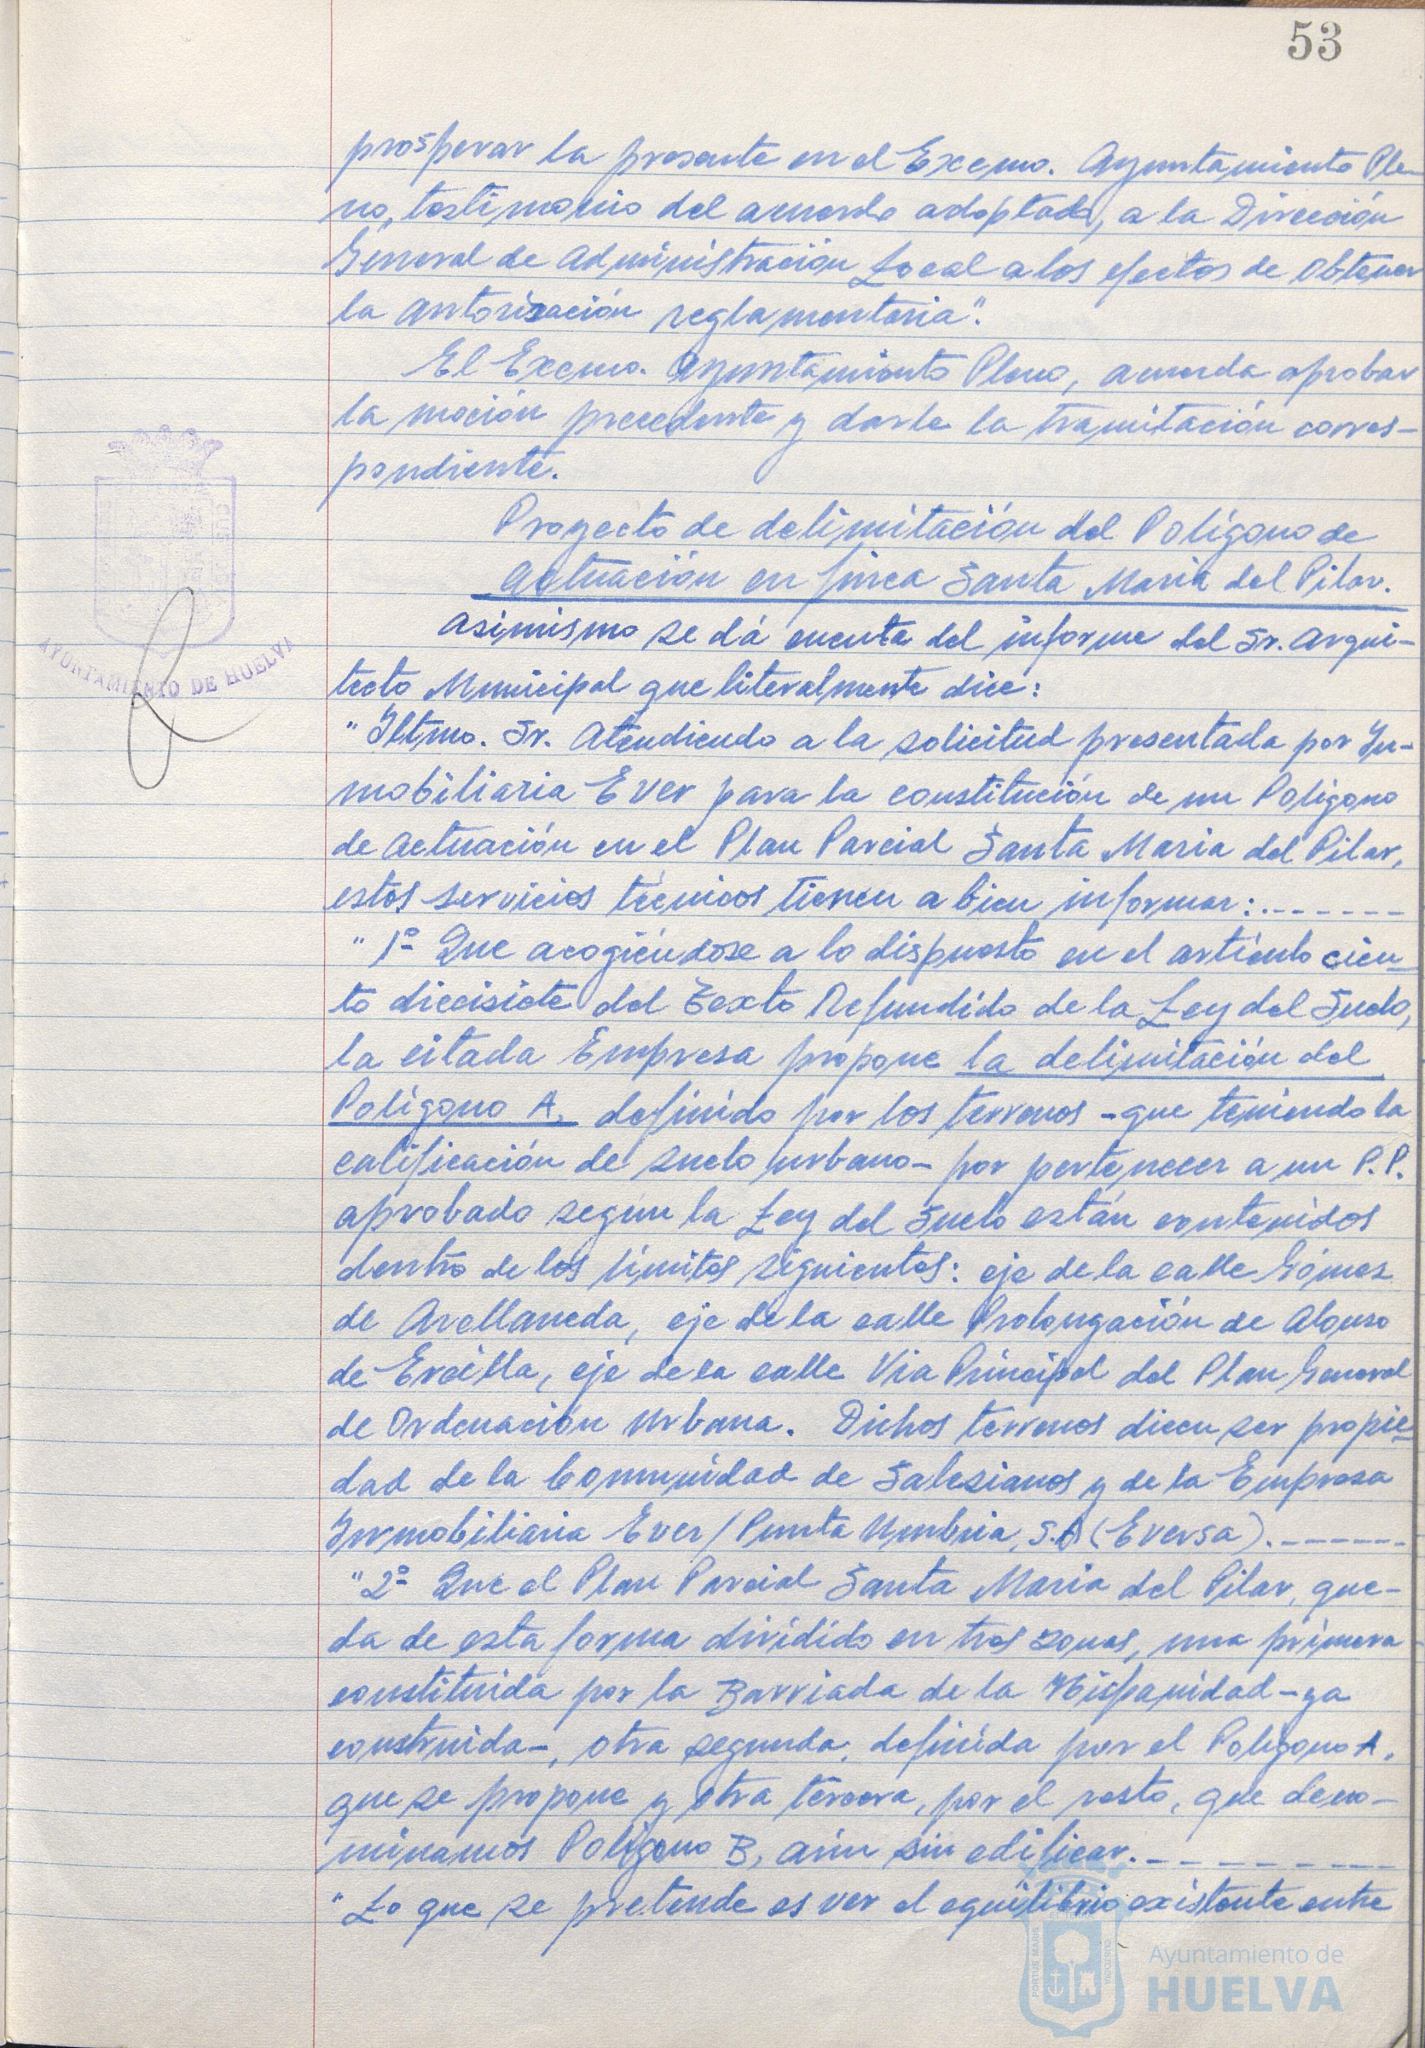 53
prosperar la presente en el Excmo. Ayuntamiento Ple-
no, testimonio del acuerdo adoptado, a la Dirección
General de Administración Local a los efectos de obtener
la autorización reglamentaria".
El Excmo. Ayuntamiento Pleno, acuerda aprobar
la moción precedente y darle la tramitación corres-
pondiente.
Proyecto de delimitación del Polígono de
Actuación en finca Santa Maria del Pilar.
Asimismo se dá cuenta del informe del Sr. Arqui-
tecto Municipal que literalmente dice:
"Iltmo. Sr. Atendiendo a la solicitud presentada por In-
mobiliaria Ever para la constitución de un Poligono
de Actuación en el Plan Parcial Santa Maria del Pilar,
estos servicios técnicos tienen a bien informar:.-------
"1º- Que acogiéndose a lo dispuesto en el artículo cien-
to diecisiete del Texto Refundido de la Ley del Suelo,
la citada Empresa propone la delimitación del
Polígono A, definido por los terrenos -que teniendo la
calificación de suelo urbano- por pertenecer a un P.P.
aprobado según la Ley del Suelo están contenidos
dentro de los límites siguientes: eje de la calle Gómez
de Avellaneda, eje de la calle Prolongación de Alonso
de Ercilla, eje de la calle Via Principal del Plan General
de Ordenación Urbana. Dichos terrenos dicen ser propie-
dad de la Comunidad de Salesianos y de la Empresa
Inmobiliaria Ever/Punta Umbria, S.A (Eversa).------
"2º- Que el Plan Parcial Santa Maria del Pilar, que-
da de esta forma dividido en tres zonas, una primera
constituida por la Barriada de la Hispanidad -ya
construida-, otra segunda, definida por el Polígono A,
que se propone y otra tercera, por el resto, que deno-
minamos Polígono B, aún sin edificar.---------
"Lo que se pretende es ver el equilibrio existente entre
AYUNTAMIENTO DE HUELVA
PORTUS MARIS
CUSTODIA
Ayuntamiento de
HUELVA